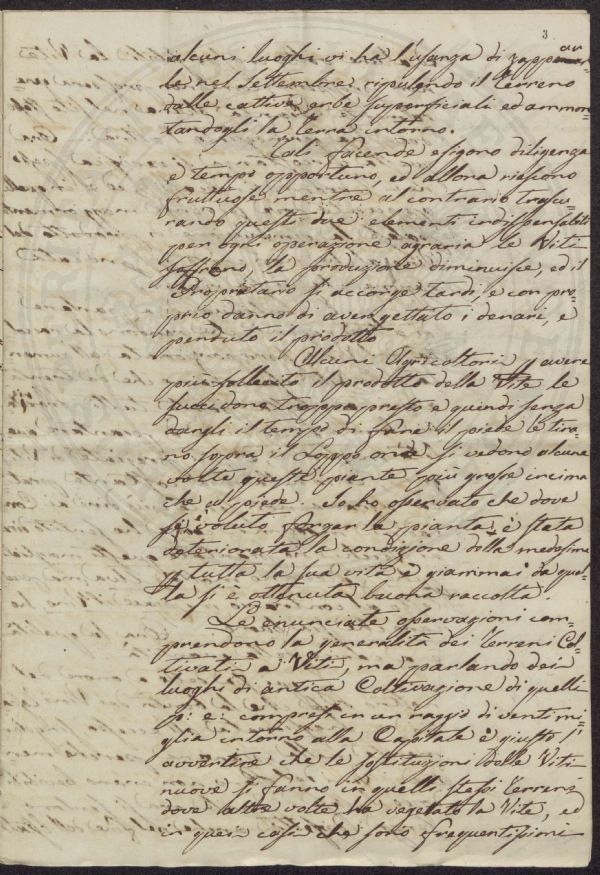 3
alcuni luoghi vi ha l'usanza di zappar=
le nel Settembre ripulendo il Terreno
dalle cattive erbe superficiali ed ammon=
tandogli la Terra intorno.
Tali facende esigono diligenza
e tempo opportuno, ed allora riescono
fruttuose mentre al contrario trascu=
rando questi due elementi indispensabili
per ogni operazione agraria le Viti
soffrono, la produzione diminuisce, ed il
Proprietario si accorge tardi, e con pro=
prio danno di aver gettato i denari, e
perduto il prodotto
Alcuni Agricoltori avere
più sollecito il prodotto della Vite le
succidono troppo presto e quindi senza
dargli il tempo di fare il piede e tira=
no sopra il Loppo onde si vedono alcune
volte queste piante più grosse in cima
che al piede. Io ho osservato che dove
si è voluto forzar la pianta è stata
deteriorata la condizione della medesima
tutta la sua vita e giammai da quel=
la si è ottenuta buona raccolta
Le enunciate osservazioni com=
prendono la generalità dei Terreni Col=
tivati a Viti, ma parlando dei
luoghi di antica Coltivazione di quelli
p: e: compresi in un raggio di venti mi=
glia intorno alla Capitale è giusto
avvertire che le sostituzioni delle Viti
nuove si fanno in quelli stessi terreni
dove altre volte ha vegetato la Vite, ed
in quei casi che sono frequentissimi